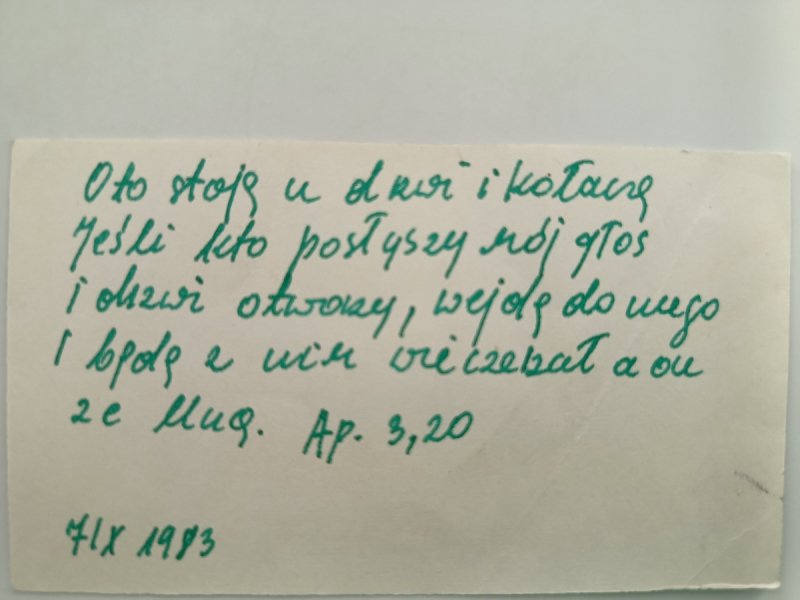 Oto stoję u drzwi i kołaczę
Jeśli kto posłyszy mój głos
i drzwi otworzy, wejdę do niego
i będę z nim wieczerzał a on
ze Mną. Ap. 3,20
7 IX 1983